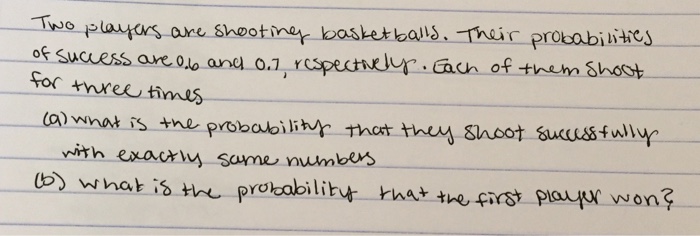 Two players are shooting basketballs. Their probabilities
of success are 0.6 and 0.7, respectively. Each of them shoot
for three times
(a) what is the probability that they shoot successfully
with exactly same numbers
(b) what is the probability that the first player won?